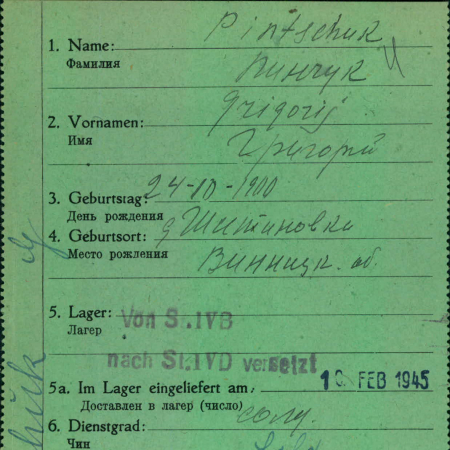 Pintschuk
1. Name:
Фамилия
Пинчук
Grigorij
2. Vornamen:
Имя
Григорий
3. Geburtstag: 24-10-1900
День рождения
4. Geburtsort: д Шитиновка
Место рождения
Винницк. об.
5. Lager: Von St.IVB
Лагер
nach St.IVD versetzt
5a. Im Lager eingeliefert am: FEB 1945
Доставлен в лагер (число)
6. Dienstgrad: солд.
Чин